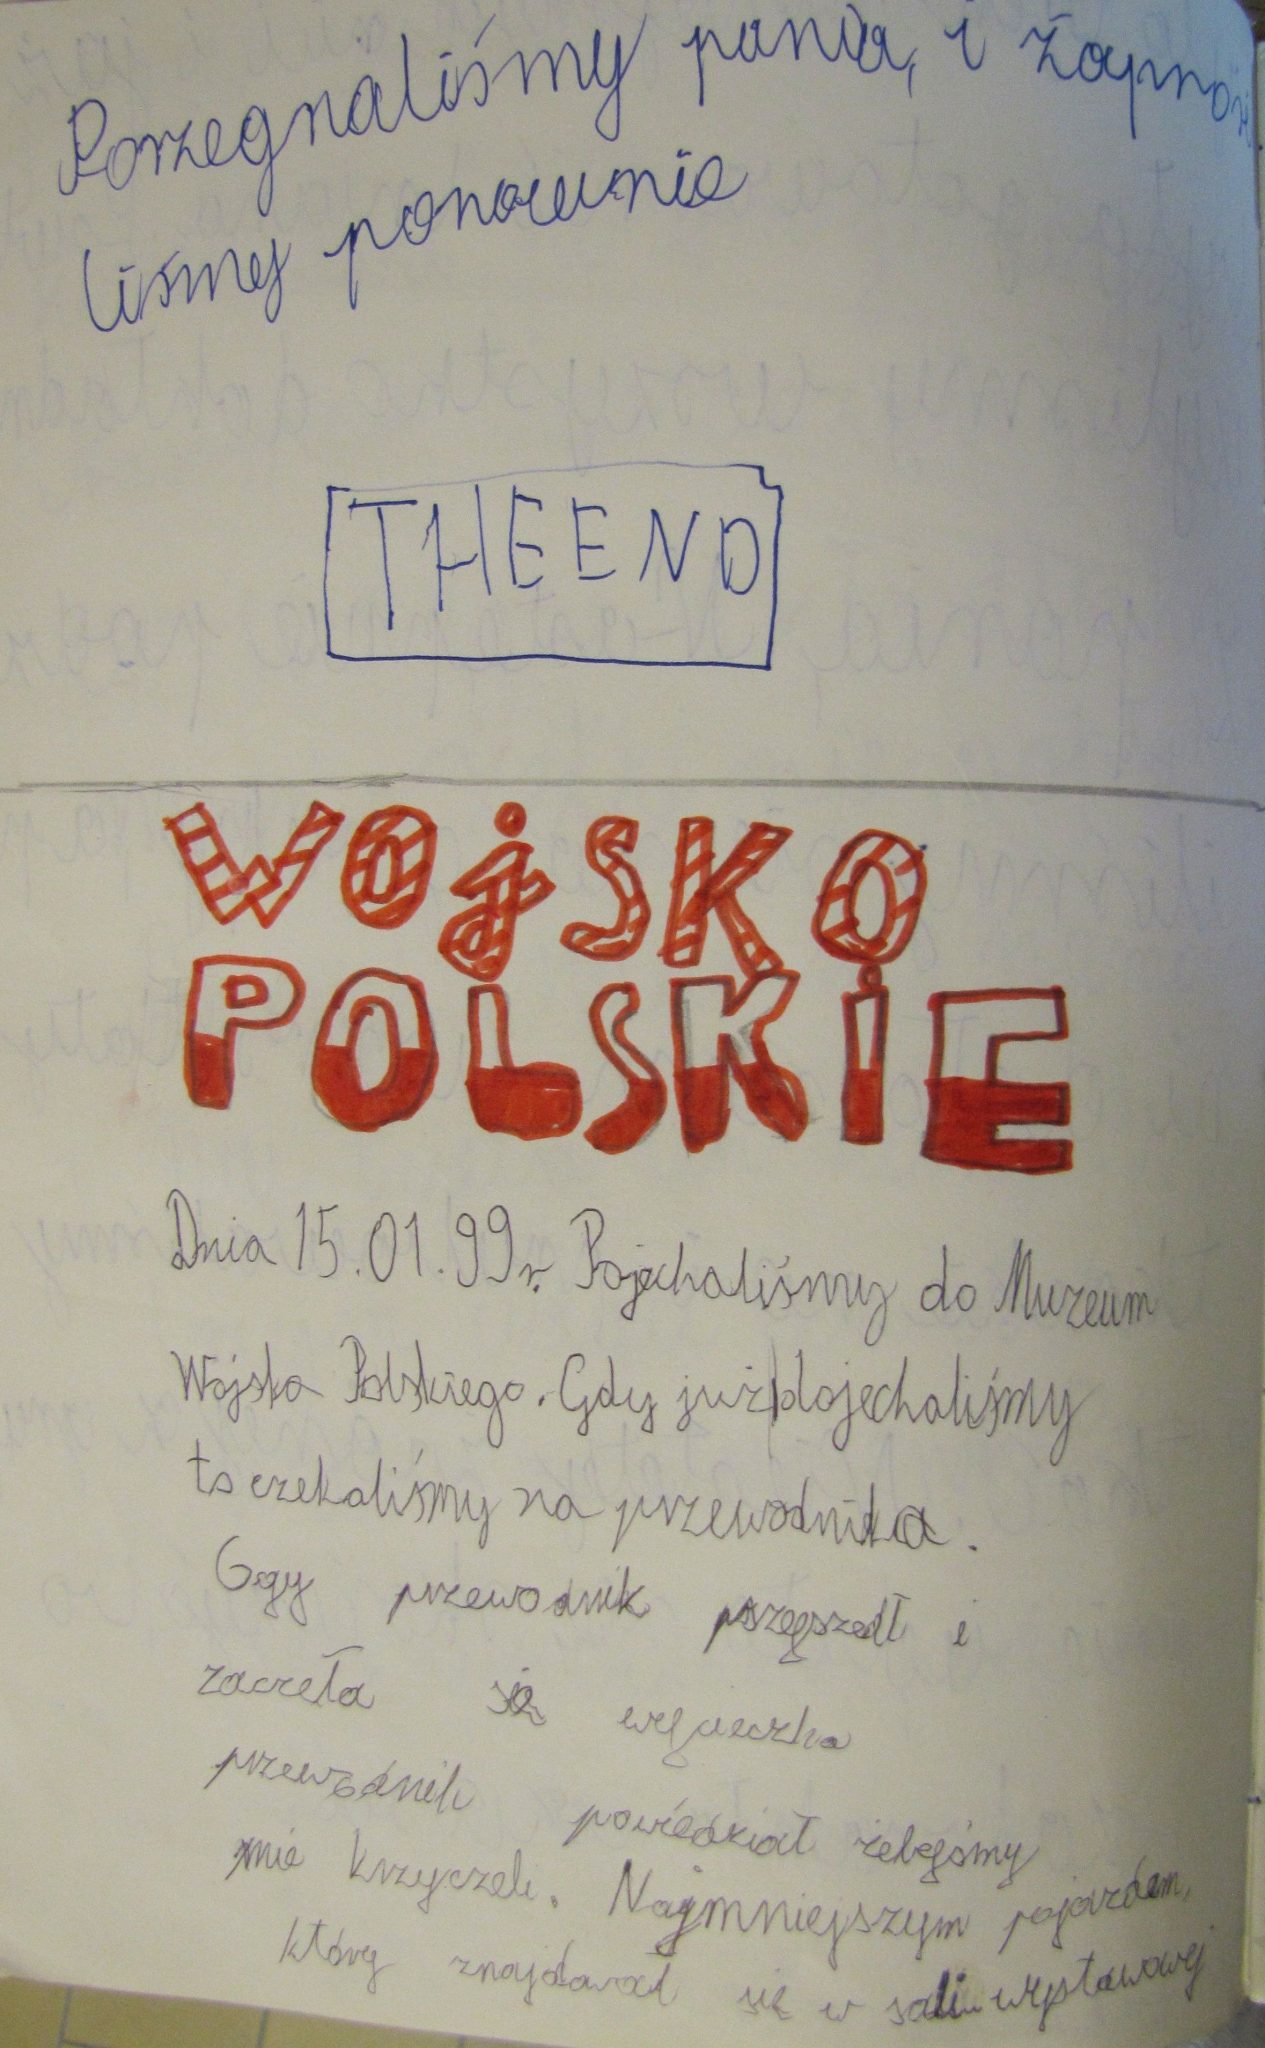 Porzegnaliśmy pania, i zaproś
liśmy ponownie
THE END
WOjSKO
POLSKiE
Dnia 15.01.99r. Pojechaliśmy do Muzeum
Wojska Polskiego. Gdy już dojechaliśmy
to czekaliśmy na przewodnika.
Gdy przewodnik przyszedł i
zaczeła się wycieczka
przewodnik powiedział żebyśmy
nie krzyczeli. Najmniejszym pojazdem,
który znajdował się w sali wystawowej